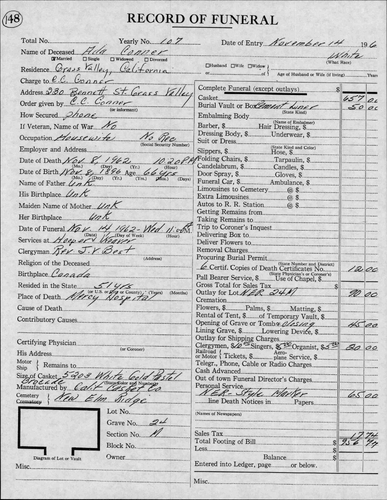 148
RECORD OF FUNERAL
Total No. Yearly No. 107 Date of Entry November 14 196
Name of Deceased Ada Conner White
Married Single Widowed Divorced Husband Wife Widow (What Race)
Residence Grass Valley, California of
Charge to C.C. Conner Age of Husband or Wife (if living) Years
Address 280 Bennett St. Grass Valley
Order given by C.C. Conner
How Secured Phone
If Veteran, Name of War No
Occupation Housewife No Rec.
(Social Security Number)
Employer and Address
Date of Death Nov. 8, 1962 10:20 PM
Date of Birth Nov 8, 1886
Name of Father Unk
His Birthplace Unk
Maiden Name of Mother Unk
Her Birthplace Unk
Date of Funeral Nov 14 1962 - Wed 11:00
Services at Hooper Weaver
Clergyman Rev. J. V. Best
Religion of the Deceased
Birthplace Canada
Resided in the State 51 yrs
Place of Death Mercy Hospital
Cause of Death
Contributory Causes
Certifying Physician
(or Coroner)
His Address
Motor Ship Remains to
Size of Casket 5203 White Gold Pastel
Brocade
Manufactured by Calif Casket Co
Cemetery New Elm Ridge
Lot No.
Grave No. 24
Section No. A
Diagram of Lot or Vault
Misc.
Complete Funeral (except outlays) $
Casket 657.00
Burial Vault or Box Cement Liner 50.00
(State Kind)
Embalming Body
Barber, $ Hair Dressing, $
Dressing Body, $ Underwear, $
Suit or Dress
(State Kind and Color)
Slippers, $ Hose, $
Folding Chairs, $ Tarpaulin, $
Candelabrum, $ Candles, $
Door Spray, $ Gloves, $
Funeral Car, $ Ambulance, $
Limousines to Cemetery @ $
Extra Limousines @ $
Autos to R. R. Station @ $
Getting Remains from
Taking Remains to
Trip to Coroner's Inquest
Delivering Box to
Deliver Flowers to
Removal Charges
Procuring Burial Permit
6 Certif. Copies of Death Certificates No. 12.00
(State Physician's or Coroner's)
Pall Bearer Service, $ Use of Chapel, $
Gross Total for Sales Tax $
Outlay for Lot N.E.R. 24A 90.00
Cremation
Flowers, $ Palms, $ Matting, $
Rental of Tent, $ of Temporary Vault, $
Opening of Grave or Tomb & closing 45.00
Lining Grave, $ Lowering Devise, $
Outlay for Shipping Charges
Clergymen, $ Singers, $ Organist, $
Railroad or Motor Tickets, $ Aeroplane Service, $
Telegr., Phone, Cable or Radio Charges
Cash Advanced
Out of town Funeral Director's Charges
Personal Service
N.E.R. - Style Marker 65.00
line Death Notices in Papers
(Names of Newspapers)
Sales Tax 17.74
Total Footing of Bill $
Less $
Balance $
Entered into Ledger, page or below.
Misc.